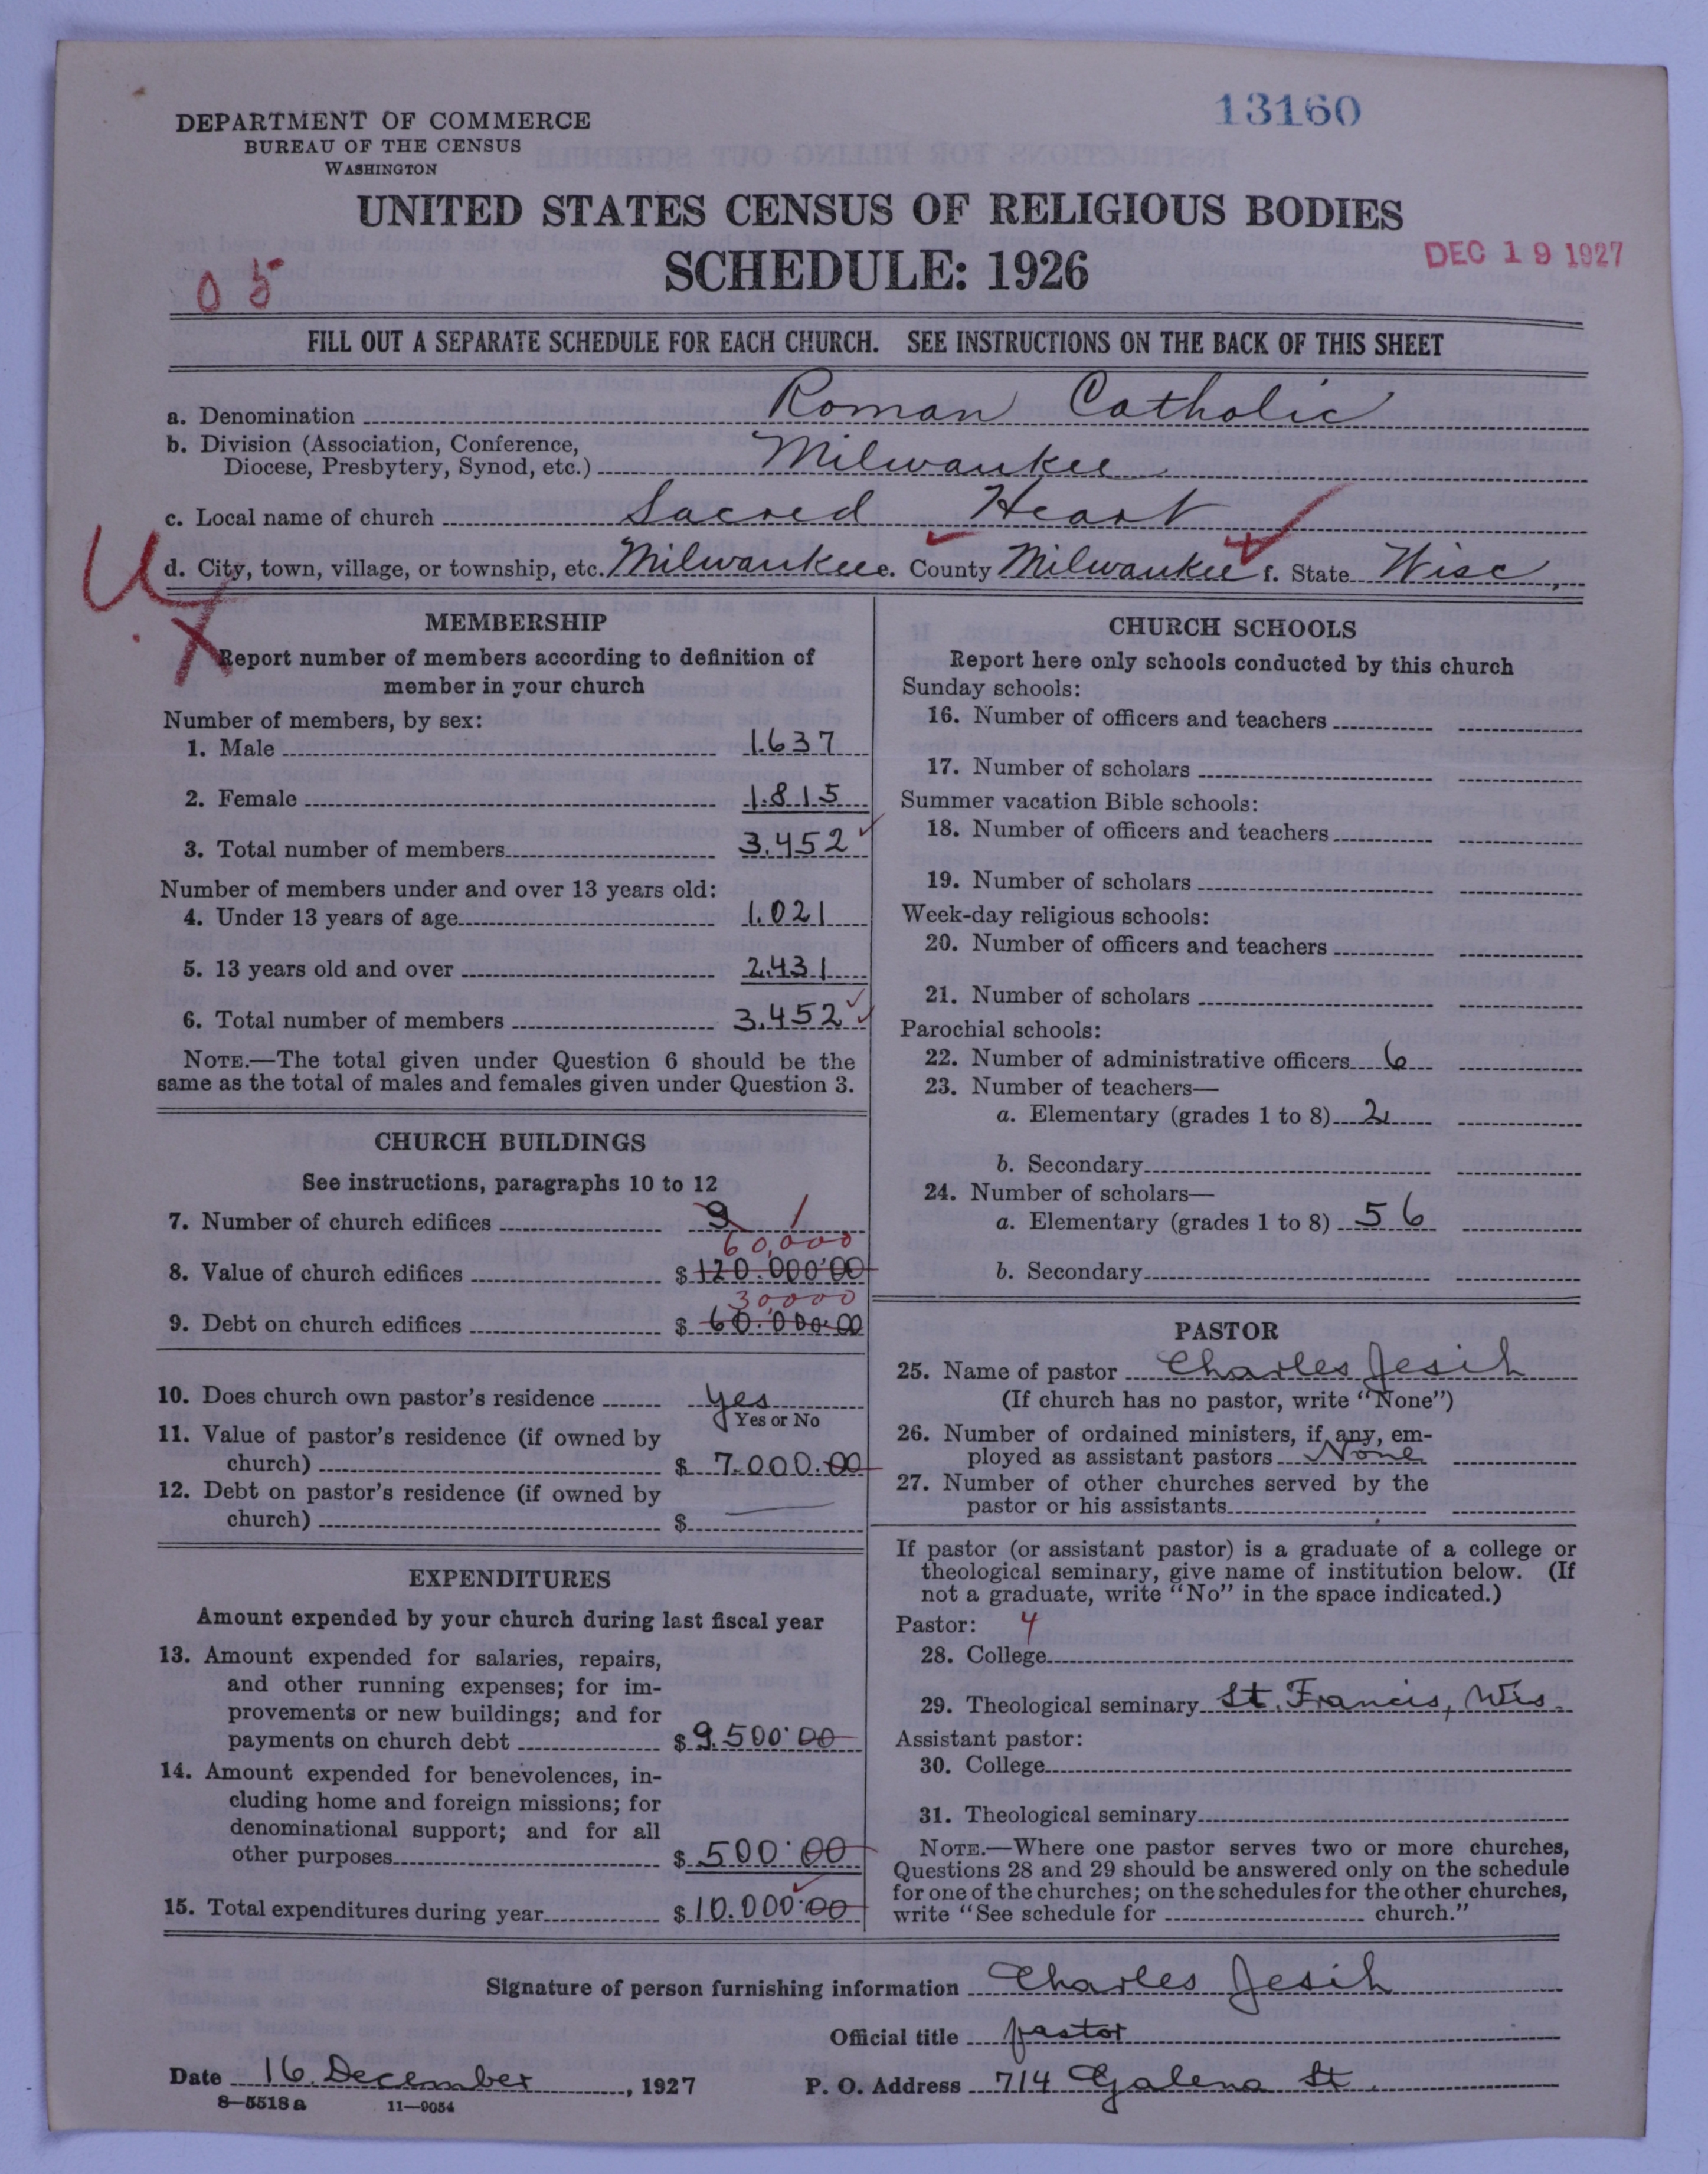 13160
DEPARTMENT OF COMMERCE
BUREAU OF THE CENSUS
WASHINGTON
UNITED STATES CENSUS OF RELIGIOUS BODIES
SCHEDULE: 1926
DEC 19 1927
05
FILL OUT A SEPARATE SCHEDULE FOR EACH CHURCH. SEE INSTRUCTIONS ON THE BACK OF THIS SHEET
a. Denomination Roman Catholic
b. Division (Association, Conference,
Diocese, Presbytery, Synod, etc.) Milwaukee
c. Local name of church Sacred Heart
d. City, town, village, or township, etc. Milwaukee e. County Milwaukee f. State Wisc.
U
X
MEMBERSHIP
Report number of members according to definition of
member in your church
Number of members, by sex:
1. Male 1.637
2. Female 1.815
3. Total number of members 3.452 ✓
Number of members under and over 13 years old:
4. Under 13 years of age 1.021
5. 13 years old and over 2.431
6. Total number of members 3.452 ✓
NOTE.—The total given under Question 6 should be the
same as the total of males and females given under Question 3.
CHURCH BUILDINGS
See instructions, paragraphs 10 to 12
7. Number of church edifices 1
60,000
8. Value of church edifices $ 120.000.00
30,000
9. Debt on church edifices $ 60.000.00
10. Does church own pastor's residence yes
Yes or No
11. Value of pastor's residence (if owned by
church) $ 7.000.00
12. Debt on pastor's residence (if owned by
church) $ —
EXPENDITURES
Amount expended by your church during last fiscal year
13. Amount expended for salaries, repairs,
and other running expenses; for im-
provements or new buildings; and for
payments on church debt $ 9.500.00
14. Amount expended for benevolences, in-
cluding home and foreign missions; for
denominational support; and for all
other purposes $ 500.00
15. Total expenditures during year $ 10.000.00
CHURCH SCHOOLS
Report here only schools conducted by this church
Sunday schools:
16. Number of officers and teachers
17. Number of scholars
Summer vacation Bible schools:
18. Number of officers and teachers
19. Number of scholars
Week-day religious schools:
20. Number of officers and teachers
21. Number of scholars
Parochial schools:
22. Number of administrative officers 6
23. Number of teachers—
a. Elementary (grades 1 to 8) 2
b. Secondary
24. Number of scholars—
a. Elementary (grades 1 to 8) 56
b. Secondary
PASTOR
25. Name of pastor Charles Jesih
(If church has no pastor, write "None")
26. Number of ordained ministers, if any, em-
ployed as assistant pastors None
27. Number of other churches served by the
pastor or his assistants
If pastor (or assistant pastor) is a graduate of a college or
theological seminary, give name of institution below. (If
not a graduate, write "No" in the space indicated.)
Pastor: 4
28. College
29. Theological seminary St. Francis, Wis.
Assistant pastor:
30. College
31. Theological seminary
NOTE.—Where one pastor serves two or more churches,
Questions 28 and 29 should be answered only on the schedule
for one of the churches; on the schedules for the other churches,
write "See schedule for church."
Signature of person furnishing information Charles Jesih
Official title pastor
Date 16. December, 1927 P. O. Address 714 Galena St.
8—5518 a 11—9054